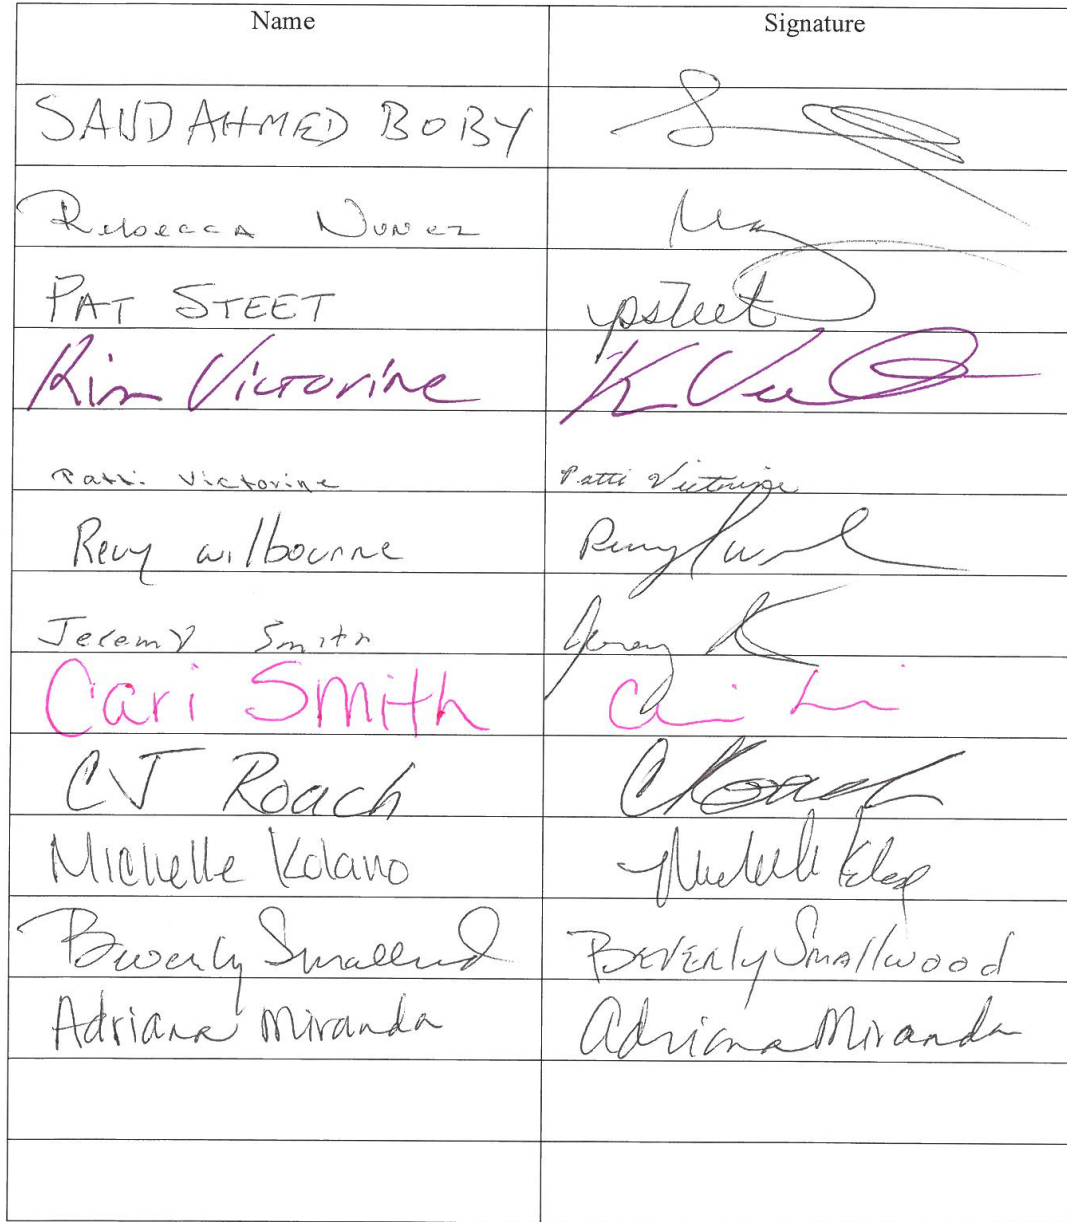 Name Signature
SAUD AHMED BOBY
Rebecca Nunez
PAT STEET psteet
Kim Victorine K
Patti Victorine Patti Victorine
wilbourne
Jeremy Smith
Cari Smith
CJ Roach CRoach
Michelle Kolano Michelle
Beverly Smallwood BEVErly Smallwood
Adriana Miranda Adriana Miranda